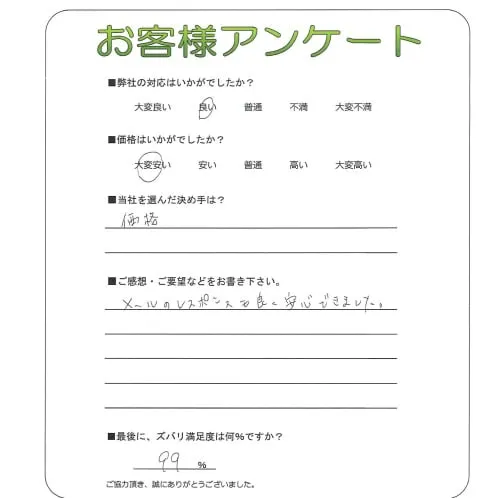 お客様アンケート
■弊社の対応はいかがでしたか？
大変良い 良い 普通 不満 大変不満
■価格はいかがでしたか？
大変安い 安い 普通 高い 大変高い
■当社を選んだ決め手は？
価格
■ご感想・ご要望などをお書き下さい。
メールのレスポンスも良く安心できました。
■最後に、ズバリ満足度は何%ですか？
99 %
ご協力頂き、誠にありがとうございました。